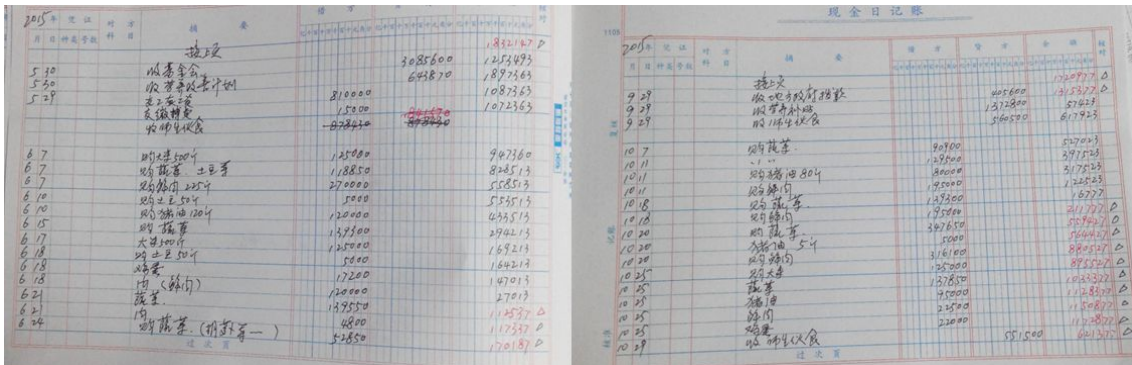 2015年 凭证 对方科目 摘要 借方 核对
月 日 种类 号数
接上页 1832147 △
5 30 收基金会 3085600 1253493
5 30 643870 1897363
5 29 810000 1087363
15000 1072363
收师生伙食 878430
6 7 购大米500斤 125000 947360
6 7 购蔬菜、土豆等 118850 826513
6 7 购鲜肉 225斤 270000 558513
6 10 购土豆50斤 5000 553513
6 10 购猪油120斤 120000 433513
6 15 购蔬菜 139300 294213
6 17 大米500斤 125000 169213
6 18 购土豆50斤 5000 164213
6 18 鸡蛋 17200 147013
6 18 肉(鲜肉) 120000 27013
6 21 蔬菜 139550 112537 △
6 21 肉 4800 117337 △
6 24 购蔬菜 52850 170187 △
过次页
现金日记账
2015年 凭证 对方科目 摘要 借方 贷方 余额 核对
月 日 种类 号数
接上页 1720977 △
9 29 收地方政府拨款 405600 1315377 △
9 29 收营养补贴 1372800 57423
9 29 收师生伙食 560500 617923
10 7 购蔬菜 90900 527023
10 11 〃 〃 129500 397523
10 11 购猪油80斤 80000 317523
10 11 购鲜肉 195000 122523
10 18 购蔬菜 139300 16777
10 18 购鲜肉 195000 211777 △
10 20 购蔬菜 347650 559427 △
10 20 猪油 5斤 5000 564427 △
10 20 购鲜肉 316100 880527 △
10 25 购大米 15000 895527 △
10 25 蔬菜 137850 1033377 △
10 25 猪油 95000 1128377 △
10 25 鲜肉 22500 1150877 △
10 25 鸡蛋 22000 1172877 △
10 29 收师生伙食 551500 621377 △
过次页